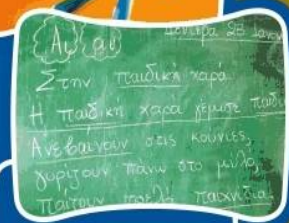 Αι αι Δευτέρα 28 Ιανου
Στην παιδική χαρά.
Η παιδική χαρά γέμισε παιδι
Ανεβαίνουν στις κούνιες,
γυρίζουν πάνω στο μύλο,
Παίζουν τρελά παιχνίδια.